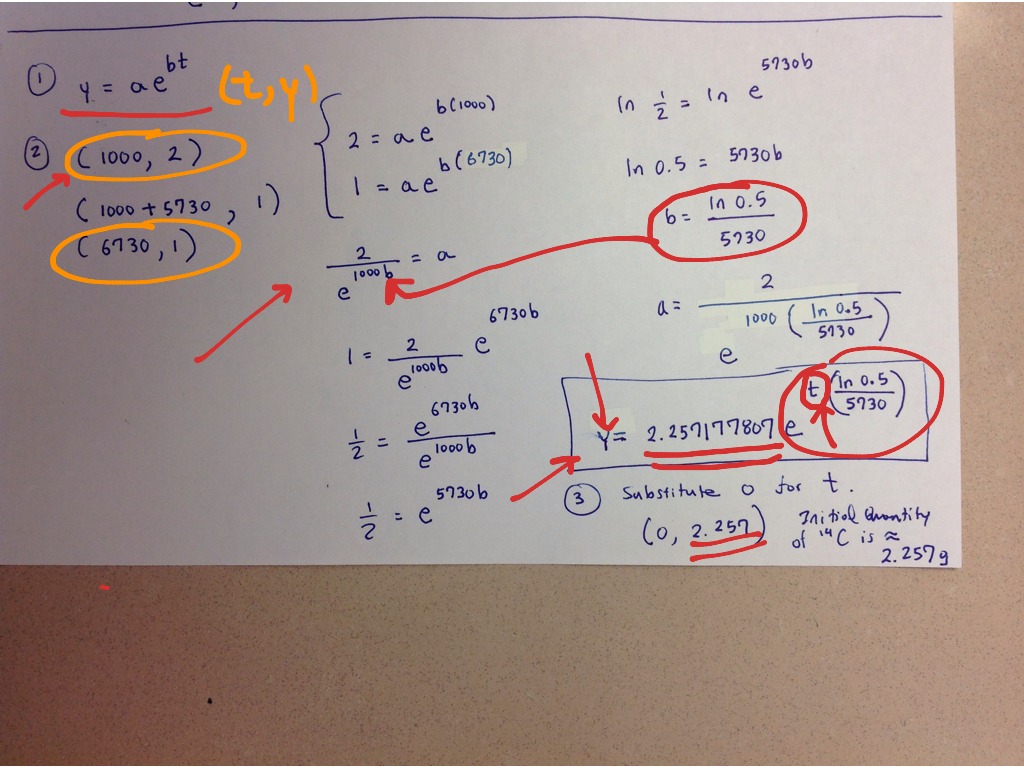 ① y = ae^{bt} (t,y)
② (1000, 2)
(1000 + 5730, 1)
(6730, 1)
2 = ae^{b(1000)}
1 = ae^{b(6730)}
\frac{2}{e^{1000b}} = a
1 = \frac{2}{e^{1000b}} e^{6730b}
\frac{1}{2} = \frac{e^{6730b}}{e^{1000b}}
\frac{1}{2} = e^{5730b}
ln \frac{1}{2} = ln e^{5730b}
ln 0.5 = 5730b
b = \frac{ln 0.5}{5730}
a = \frac{2}{e^{1000(\frac{ln 0.5}{5730})}}
Y = 2.257177807 e^{t(\frac{ln 0.5}{5730})}
③ Substitute 0 for t.
(0, 2.257) Initial Quantity
of ¹⁴C is ≈
2.257g